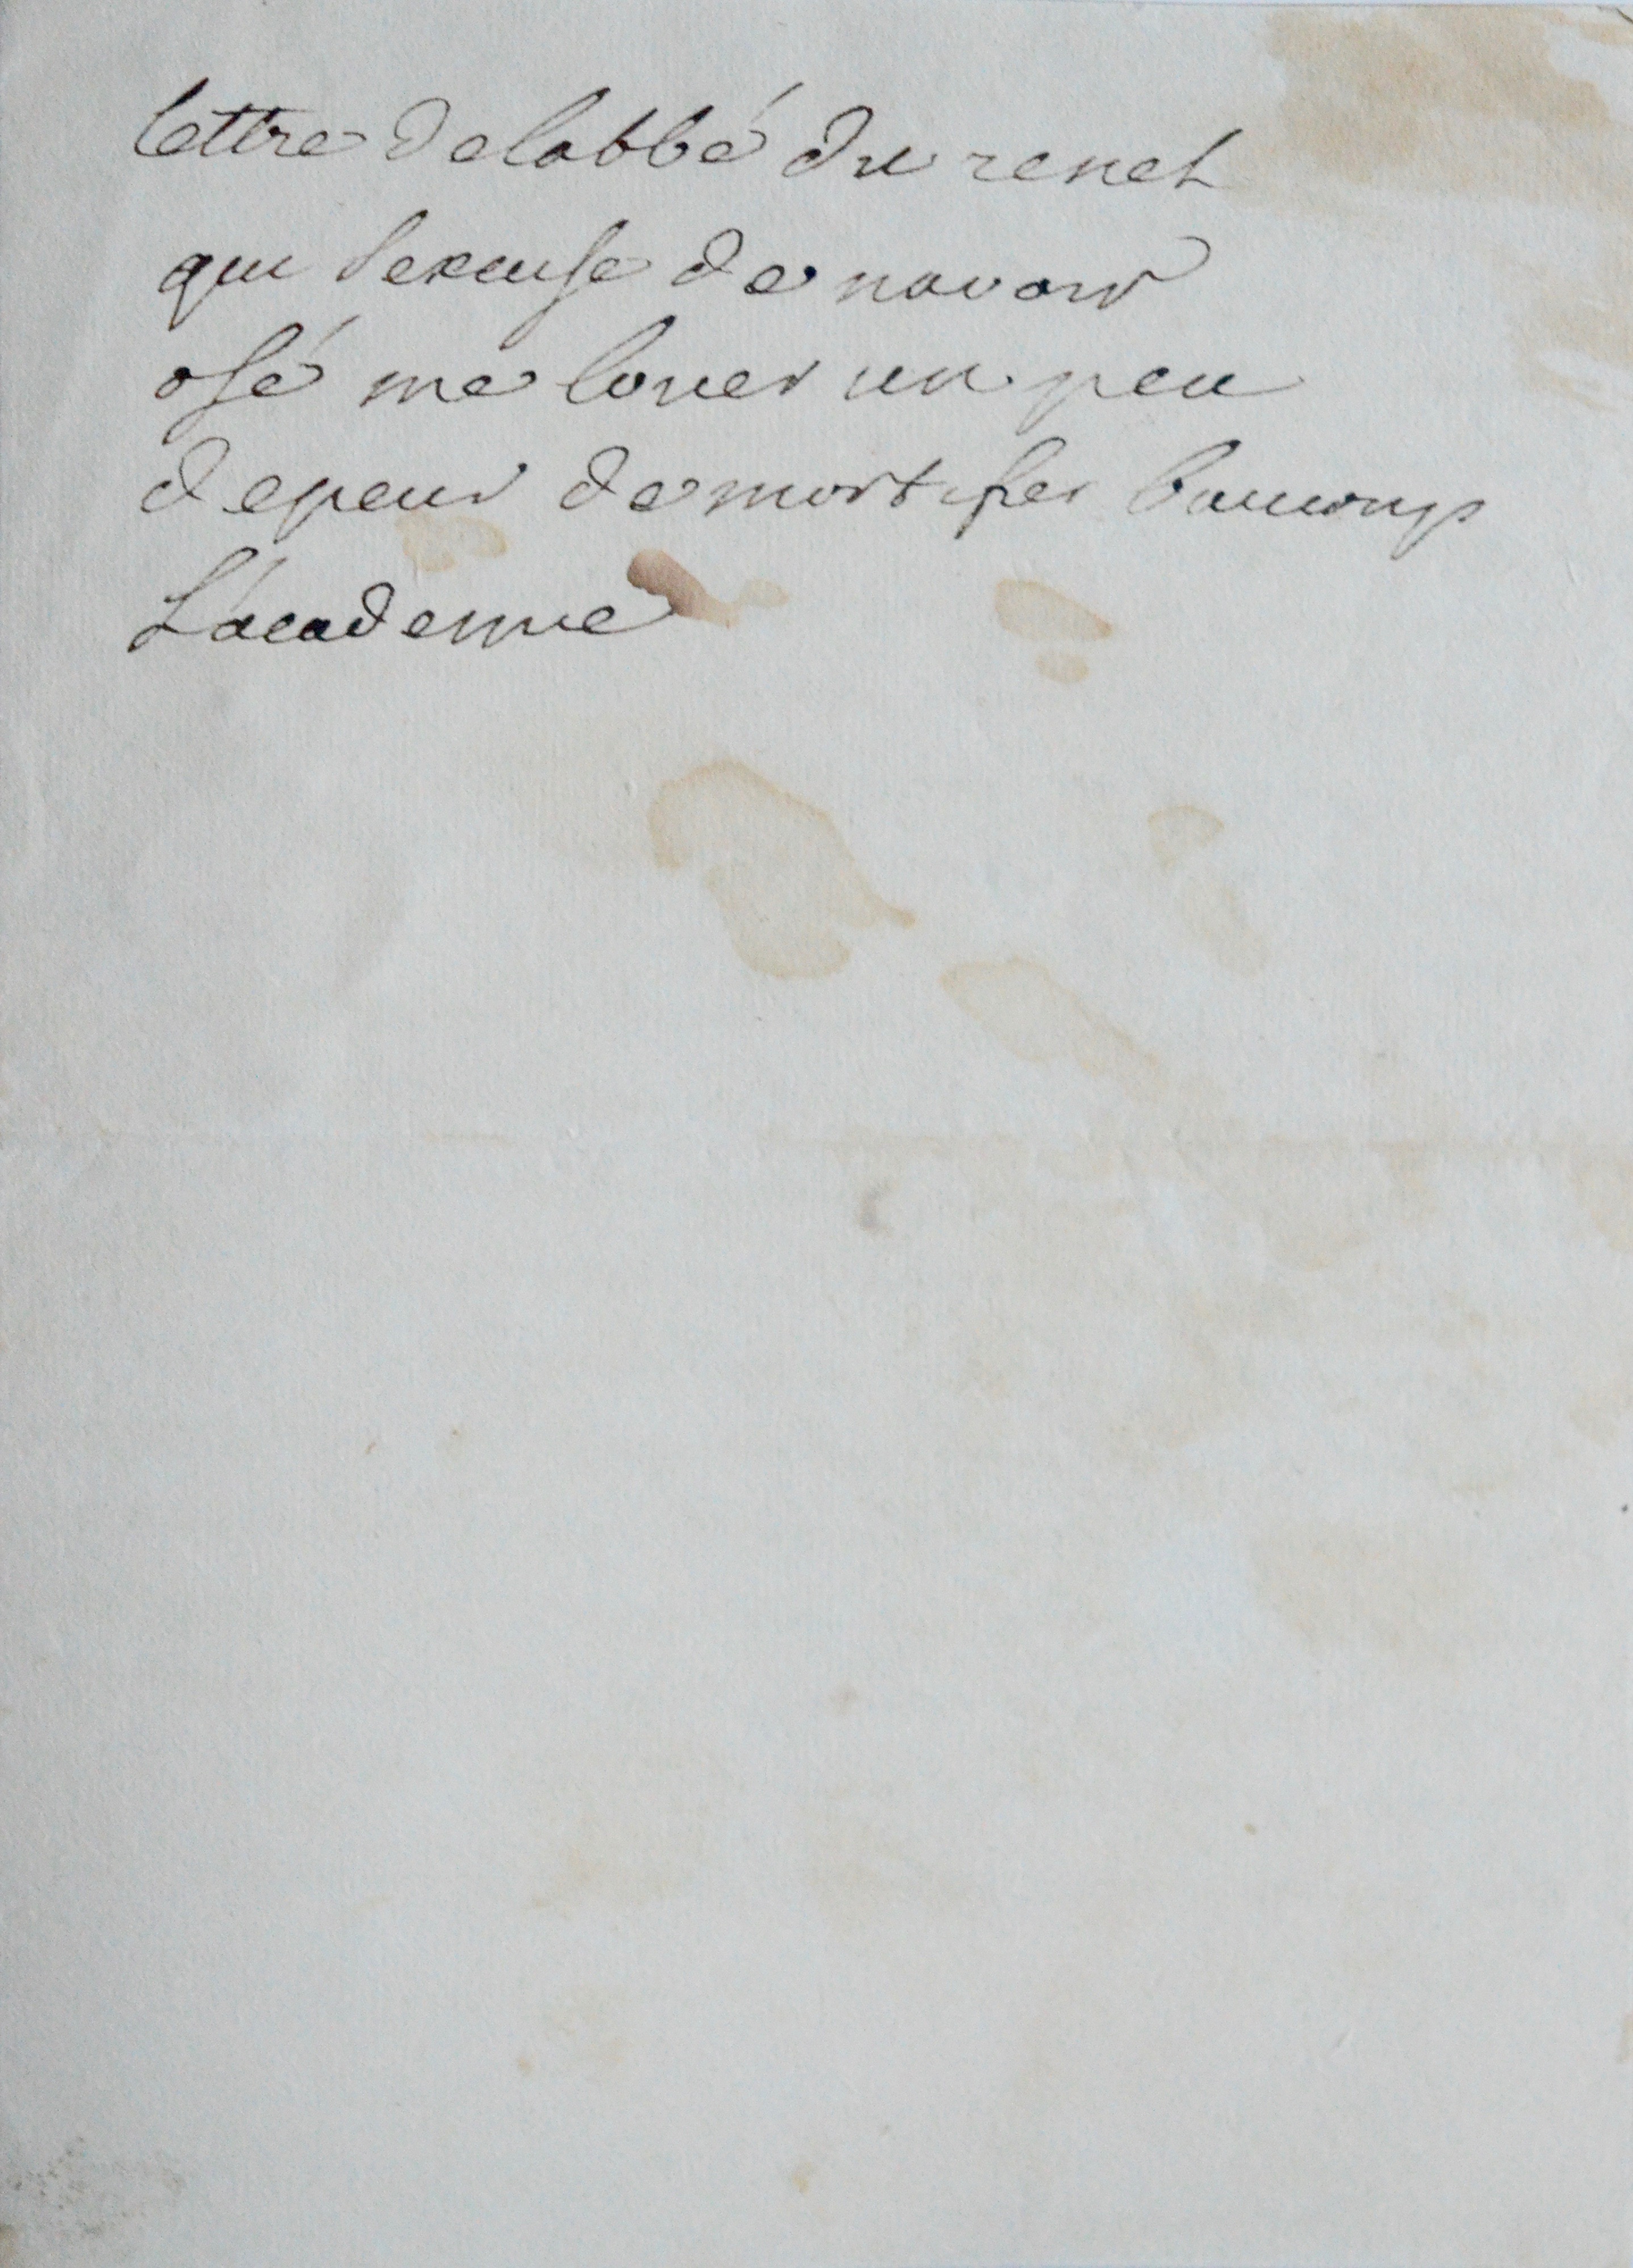 lettre de labbé du renel
qui sexcuse de navoir
osé me louer un peu
de peur de mortifier baucoup
L'academie